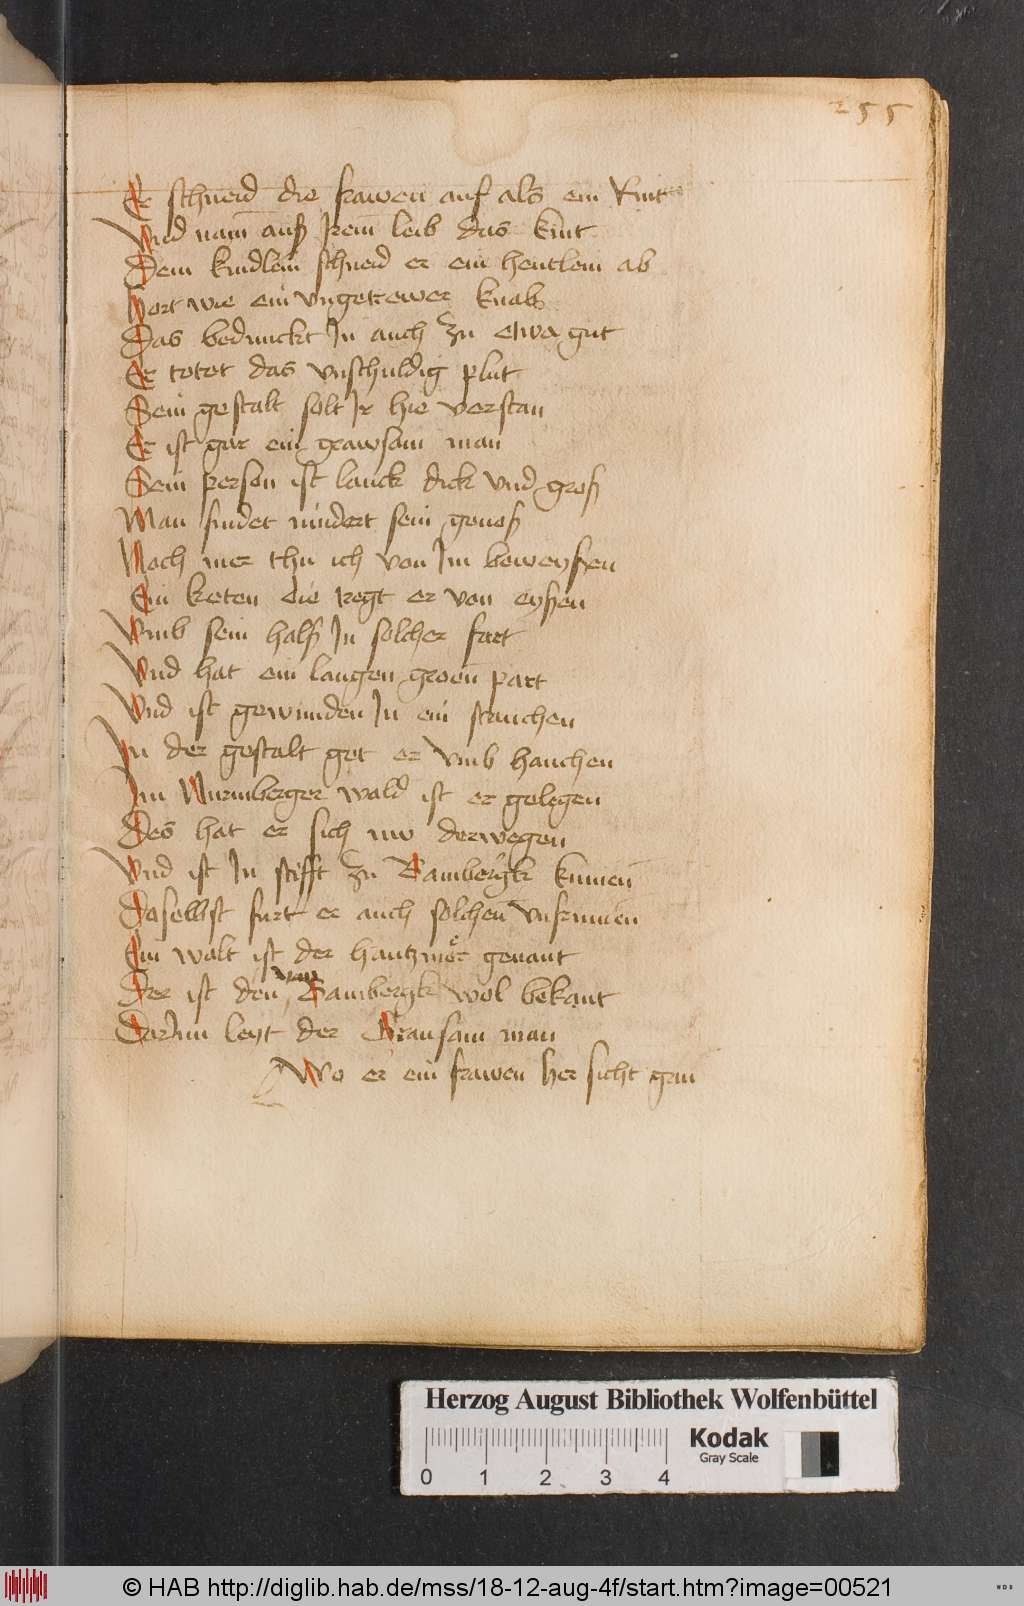 255
Er schneid die frawen auf als ein Rint
Vnd nam auß Irem leib das kint
Dem kindlein schneid er ein hentlein ab
Hort wie ein vngetrewer knab
Das bedunckt In auch zu etwa gut
Er totet das vnschuldig plut
Sein gestalt solt Ir hie verstan
Er ist gar ein grawsam man
Sein person ist lanck dick vnd groß
Man findet nindert sein genoß
Noch mer thu ich von Im beweyssen
Ein keten die tregt er von eyßen
Vmb sein halß In solcher fart
Vnd hat ein langen groen part
Vnd ist gewunden In ein stauchen
In der gestalt get er vmb hauchen
Im Nurmberger wald ist er gelegen
Des hat er sich nw derwegen
Vnd ist In stifft zu Bambergk kumen
Daselbst furt er auch solchen vnfrumen
Ein walt ist der hautzmor genant
Der ist den von Bambergk wol bekant
DarInn leyt der Grausam man
Wo er ein frawen her sicht gan
Herzog August Bibliothek Wolfenbüttel
Kodak
Gray Scale
0 1 2 3 4
© HAB http://diglib.hab.de/mss/18-12-aug-4f/start.htm?image=00521